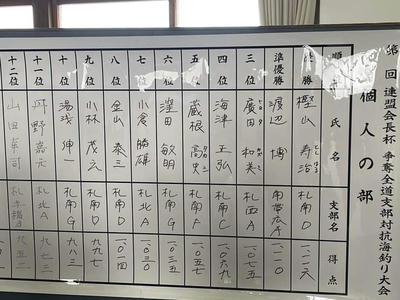 第 回 連盟会長杯 争奪全道支部対抗海釣り大会
個人の部
順位 氏名 支部名 得点
優勝 樫山 寿治 札南D 一一二六
準優勝 渡辺 博 南帯広A 一一一〇
三位 廣田 和美 札西A 一〇七五
四位 海津 正弘 札南C 一〇六九
五位 蔵根 高史 札南F 一〇五七
六位 澤田 敏明 札南G 一〇三五
七位 小倉 勝雄 札北A 一〇三〇
八位 金山 泰三 札南D 一〇一四
九位 小林 茂元 札南D 九九七
十位 湯浅 伸一 札南G 九八三
十一位 丹野 嘉元 札北A 九七三
十二位 山田 九五二